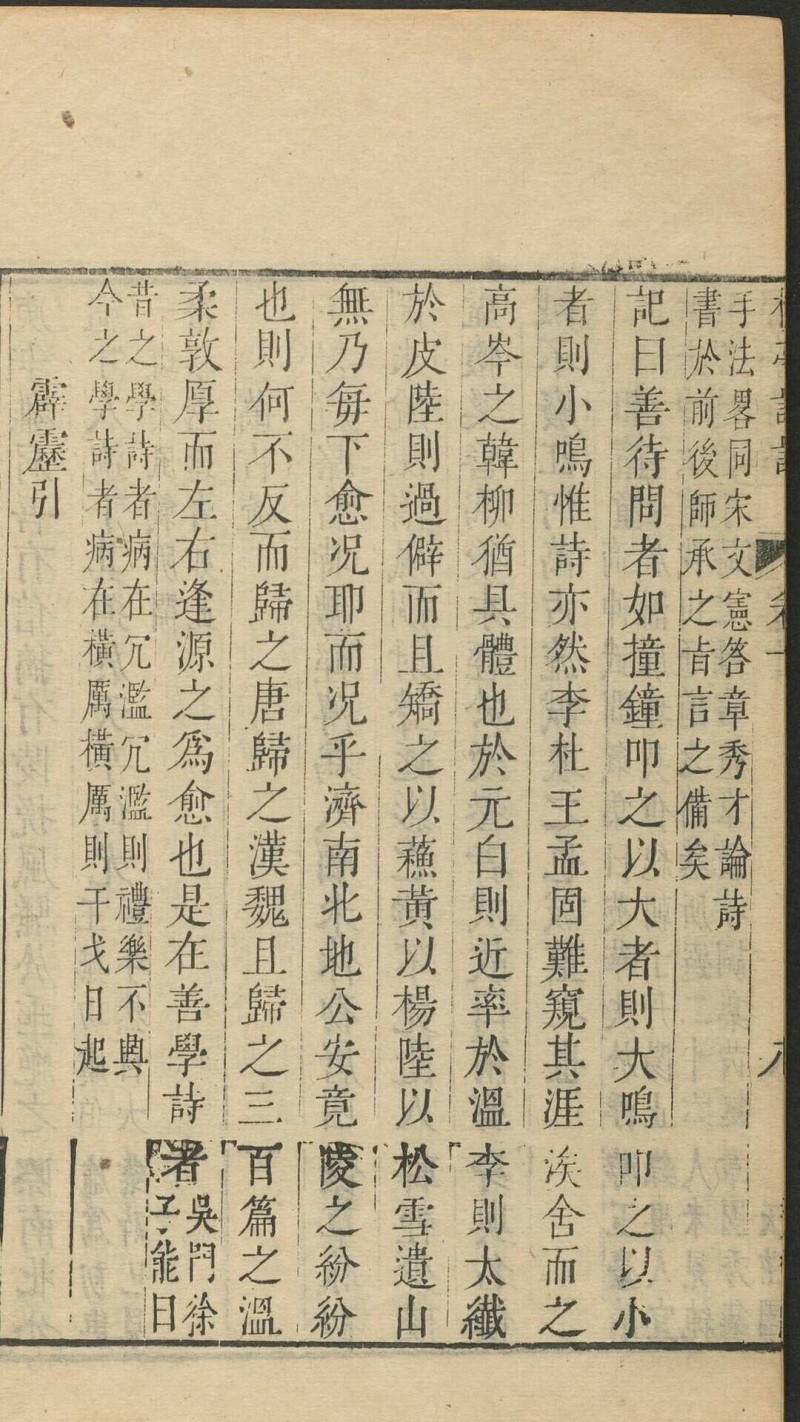 手法畧同宋文憲答章秀才論詩
書於前後師承之㫖言之備矣
記曰善待問者如撞鐘叩之以大者則大鳴叩之以小
者則小鳴惟詩亦然李杜王孟固難窺其涯涘舍而之
高岑之韓柳猶具體也於元白則近率於溫李則太纖
於皮陸則過僻而且矯之以蘓黃以楊陸以松雪遺山
無乃每下愈况耶而况乎濟南北地公安竟陵之紛紛
也則何不反而歸之唐歸之漢魏且歸之三百篇之溫
柔敦厚而左右逢源之爲愈也是在善學詩者吳門徐
子能曰
昔之學詩者病在冗濫冗濫則禮樂不興
今之學詩者病在橫厲橫厲則干戈日起
霹靂引